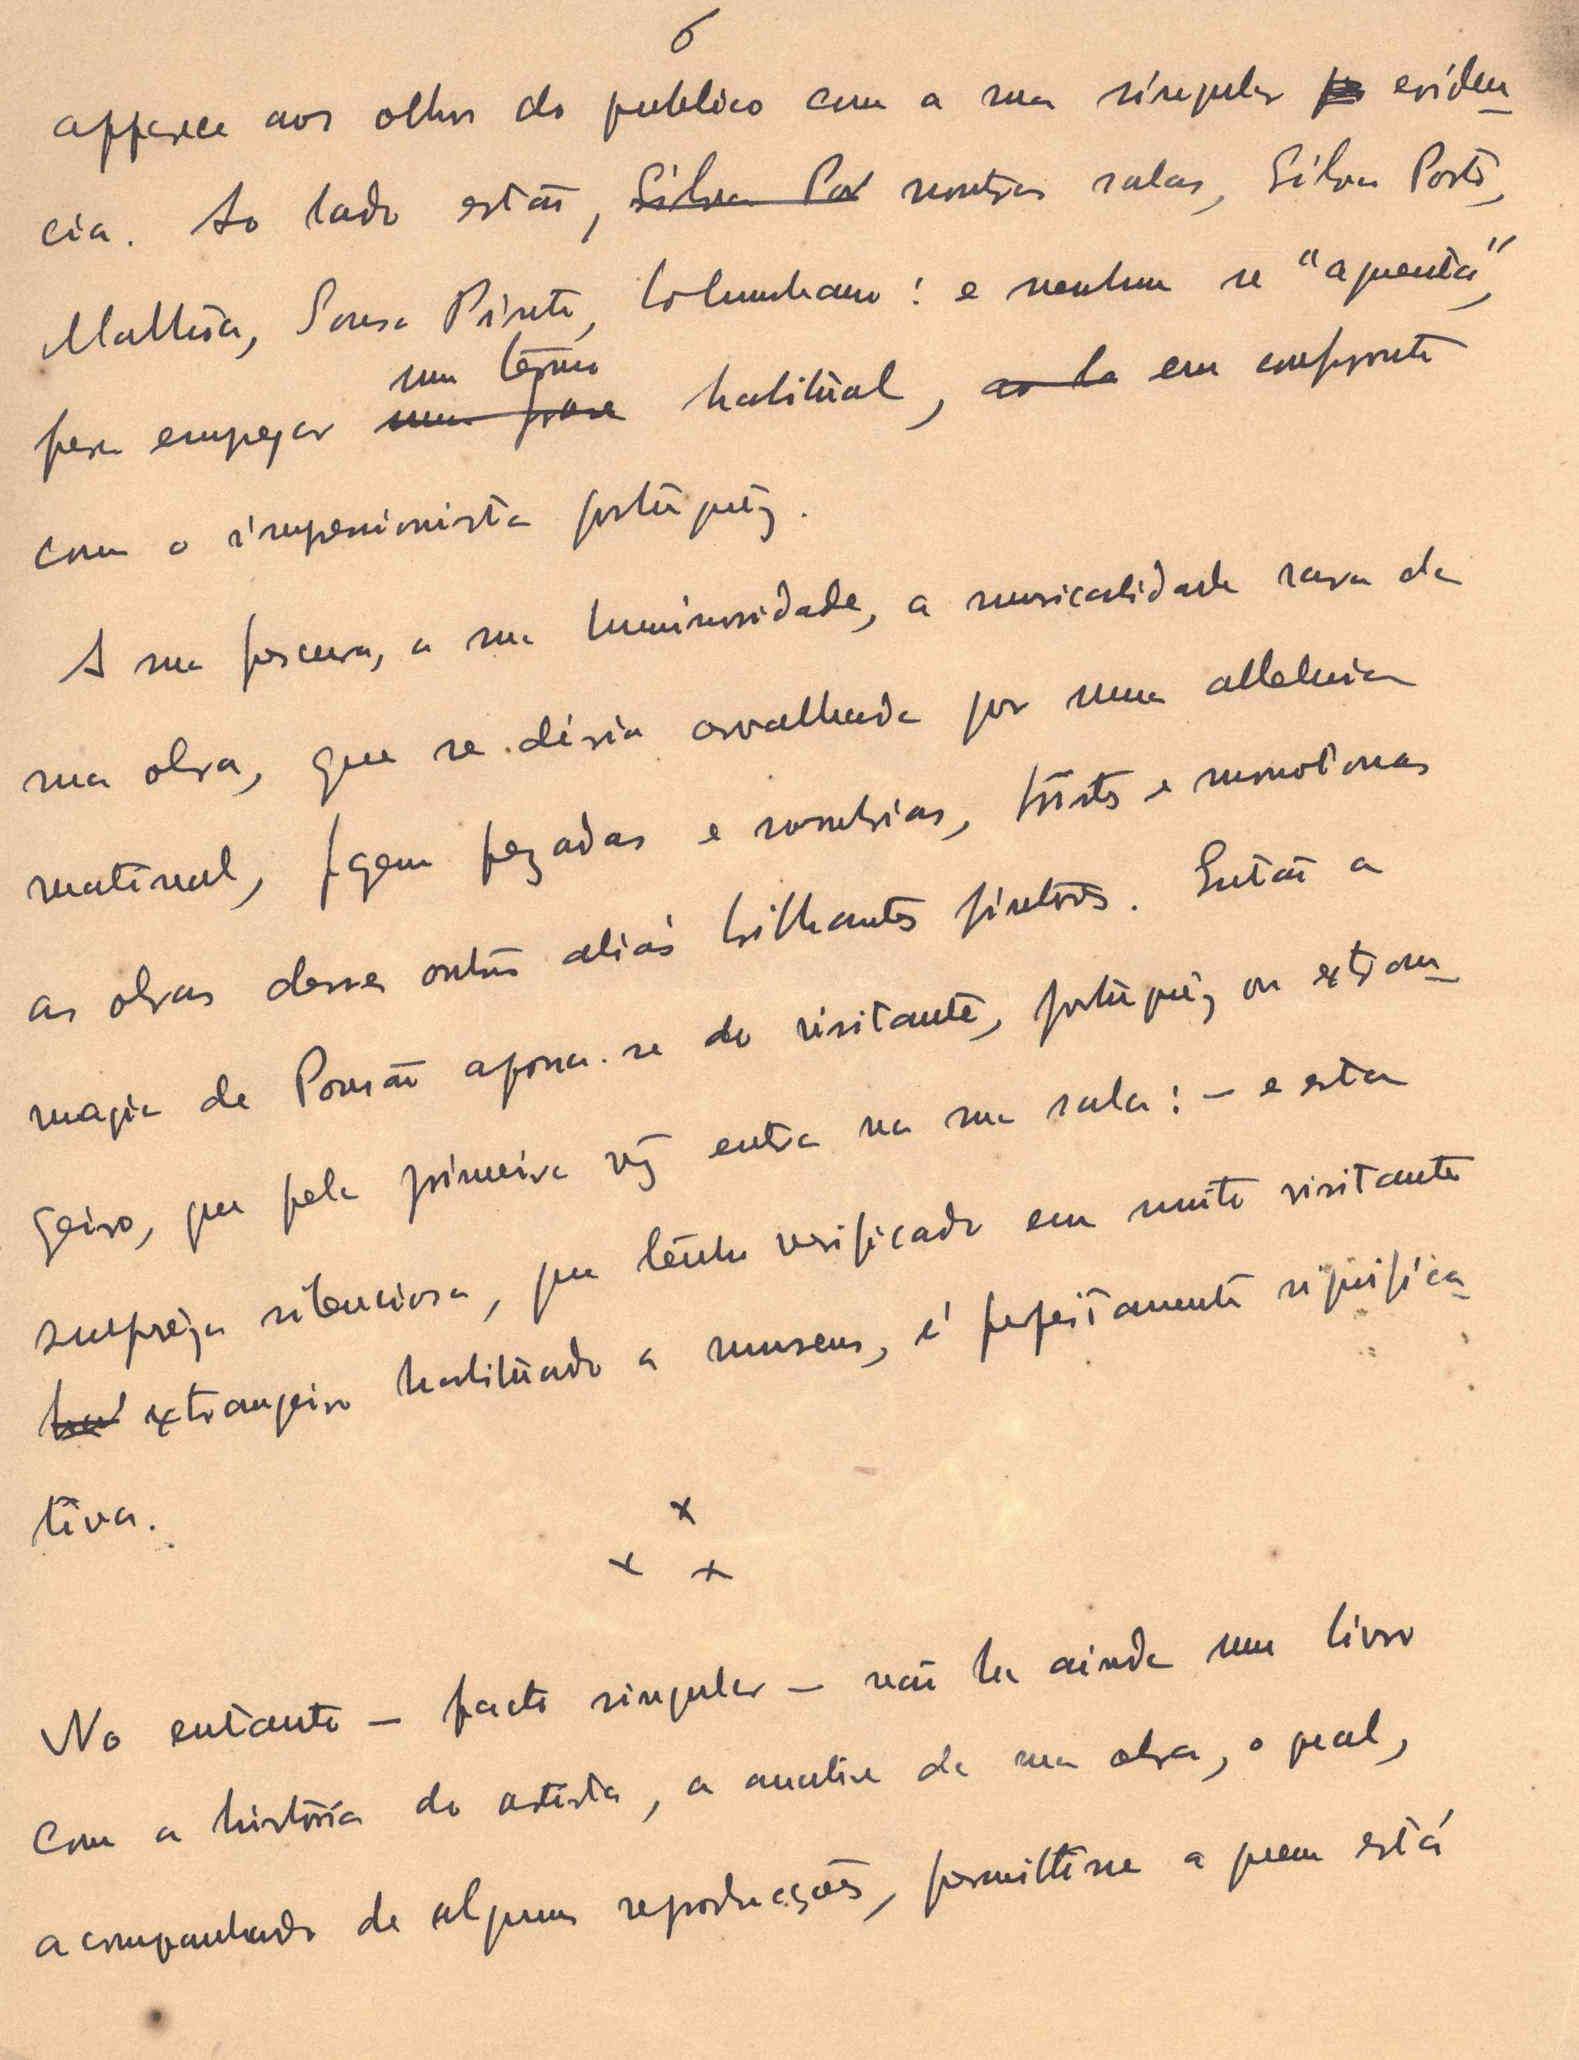 6
apparece aos olhos do publico com a sua singular eviden-
cia. Ao lado estão, Silva Por noutras salas, Silva Porto,
Malhôa, Sousa Pinto, Columbano: e nenhum se "aguenta",
um têrmo
para empregar uma frase habitual, ao la em confronto
com o impressionista português.
A sua frescura, a sua luminosidade, a musicalidade rara da
sua obra, que se diria orvalhada por uma alleluia
matinal, fazem pezadas e sombrias, tristes e monotonas
as obras desses outros aliás brilhantes pintores. Então a
magia de Pousão apossa-se do visitante, português ou extran-
geiro, que pela primeira vez entra na sua sala: — e esta
surpreza silenciosa, que tenho verificado em muito visitante
extrangeiro habituado a museus, é perfeitamente significa-
tiva.
x
x x
No entanto — facto singular — não ha ainda um livro
com a história do artista, a analise da sua obra, o qual,
acompanhado de algumas reproducções, permittisse a quem está